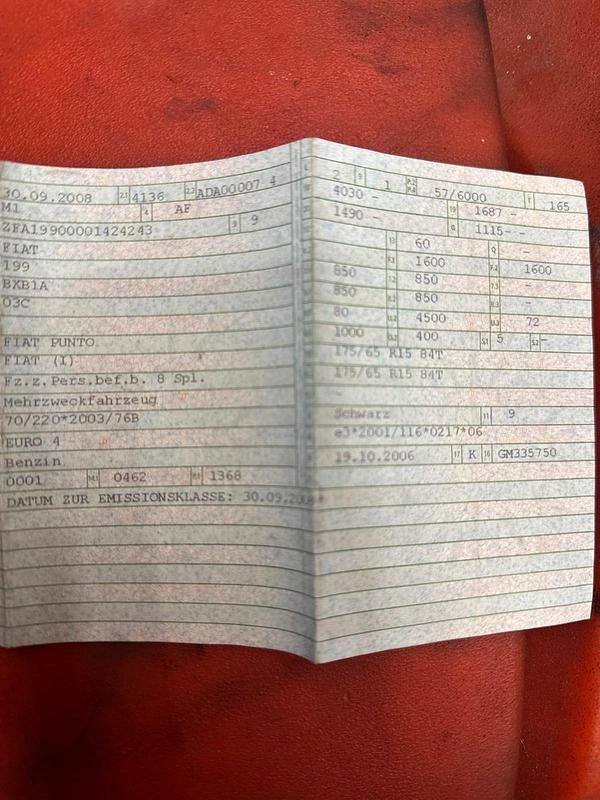 30.09.2008 2.1 4136 2.2 ADA00007 4
M1 4 AF
ZFA19900001424243 3 9
FIAT
199
BXB1A
03C
FIAT PUNTO
FIAT (I)
Fz.z.Pers.bef.b. 8 Spl.
Mehrzweckfahrzeug
70/220*2003/76B
EURO 4
Benzin
0001 0462 1368
DATUM ZUR EMISSIONSKLASSE: 30.09.2008*
2 9 1 57/6000 T 165
4030 - 1687 -
1490 - 1115--
60 Q -
1600 1600
850 850 -
850 850 -
80 4500 72
1000 400 S.1 5 S.2 -
175/65 R15 84T
175/65 R15 84T
-
Schwarz 11 9
e3*2001/116*0217*06
19.10.2006 17 K 16 GM335750